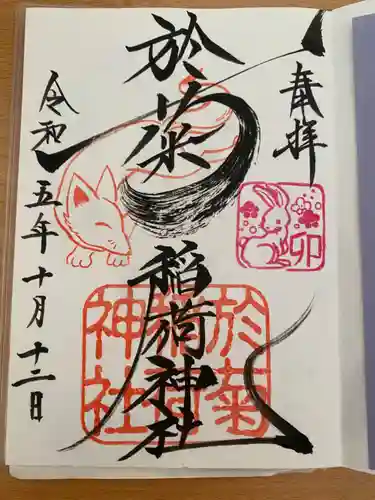 奉拝
卯
於菊
稲荷神社
於菊
稲荷
神社
令和五年十月十二日